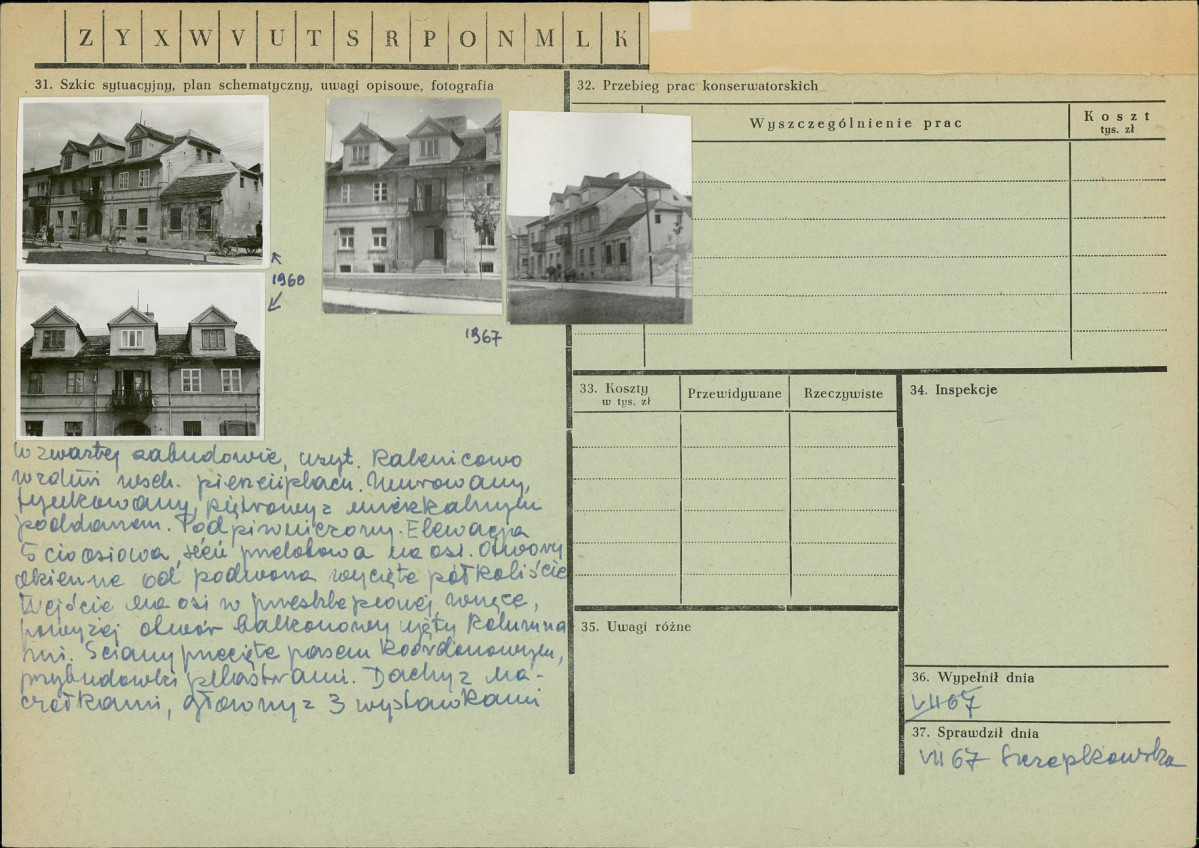 Z Y X W V U T S R P O N M L K
31. Szkic sytuacyjny, plan schematyczny, uwagi opisowe, fotografia
1960
1967
W zwartej zabudowie, usyt. kalenicowo
wzdłuż wsch. pierzei placu. Murowany,
tynkowany, piętrowy z mieszkalnym
poddaszem. Podpiwniczony. Elewacja
5cioosiowa, sień przelotowa na osi. Otwory
okienne od podwórza wycięte półkoliście
Wejście na osi w przesklepionej wnęce,
powyżej otwór balkonowy ujęty kolumna
mi. Ściany przecięte pasem kordonowym,
przybudówki pilastrami. Dachy z na-
czółkami, główny z 3 wystawkami
32. Przebieg prac konserwatorskich
Wyszczególnienie prac
Koszt
tys. zł
33. Koszty
w tys. zł
Przewidywane
Rzeczywiste
34. Inspekcje
35. Uwagi różne
36. Wypełnił dnia
VII 67
37. Sprawdził dnia
VII 67